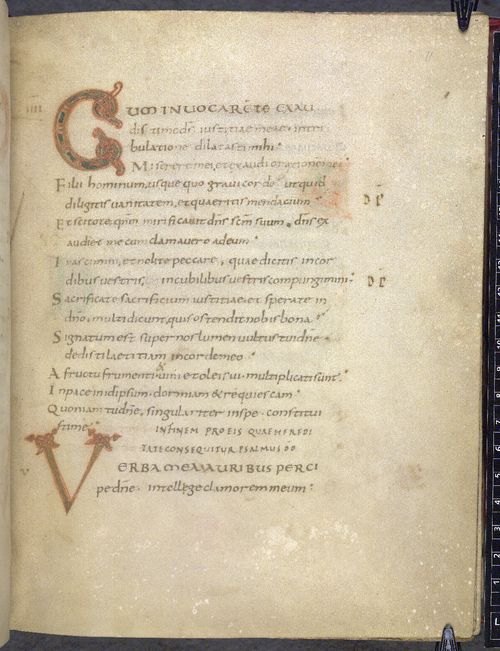 IIII
CUM INVOCARĒ TE EXAU
dis tīme dš iustitiae meae · intri
bulatione dilatasti mihi ·
Miserere mei, et exaudi orationē meā
Filii hominum usque quo gravi corde · ut quid
diligitis vanitatem, et quaeritis mendacium ·
Et scitote, qnm mirificavit dns scm suum · dns ex
audiet me cum clamavero ad eum ·
Irascimini, et nolite peccare, quae dicitis in cor
dibus vestris, in cubilibus vestris compungimini ·
Sacrificate sacrificium iustitiae, et sperate in
dno, multi dicunt, quis ostendit nobis bona ·
Signatum est super nos lumen vultus tui dne ·
dedisti laetitiam in corde meo ·
A fructu frumenti vini et olei sui · multiplicati sunt ·
In pace in idipsum · dormiam & requiescam ·
Quoniam tu dne, singulariter in spe · constitui
sti me ·
IN FINEM PRO EIS QUAE HEREDI
TATE CONSEQUITUR PSALMUS DD
V
VERBA MEA AURIBUS PERCI
pe dne · intellege clamorem meum ·